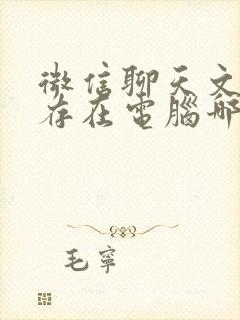 微信聊天文
存在電腦哪
毛寧